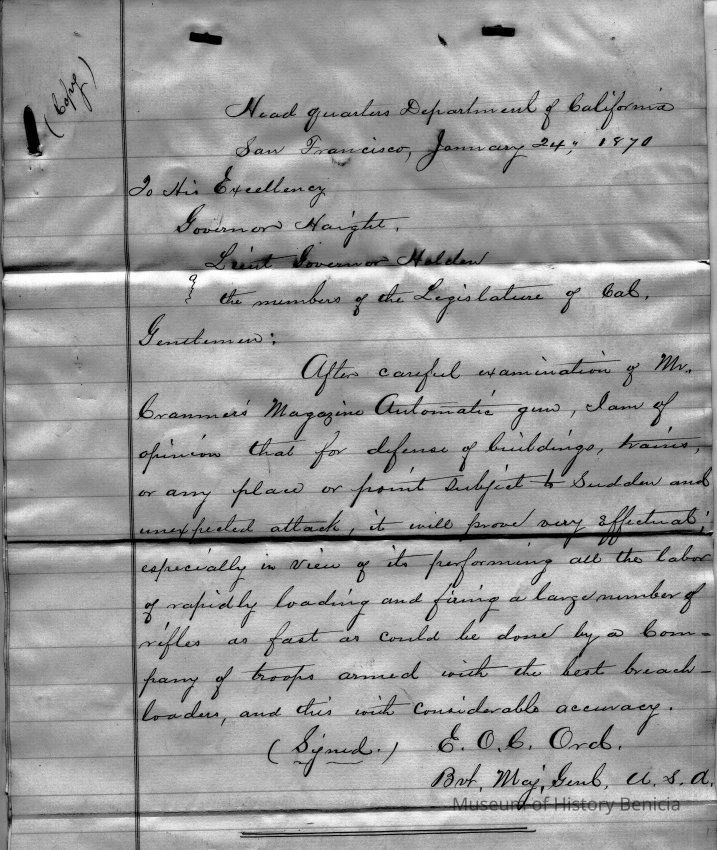 (Copy)
Head quarters Department of California
San Francisco, January 24, 1870
To His Excellency
Governor Haight,
Lieut Governor Holden
& the members of the Legislature of Cal.
Gentlemen:
After careful examination of Mr.
Cranmer's Magazine Automatic gun, I am of
opinion that for defense of buildings, trains,
or any place or point subject to Sudden and
unexpected attack, it will prove very effectual;
especially in view of its performing all the labor
of rapidly loading and firing a large number of
rifles as fast as could be done by a Com-
pany of troops armed with the best breach-
loaders, and this with considerable accuracy.
(Signed.) E. O. C. Ord.
Bvt. Maj. Genl. U. S. A.
Museum of History Benicia